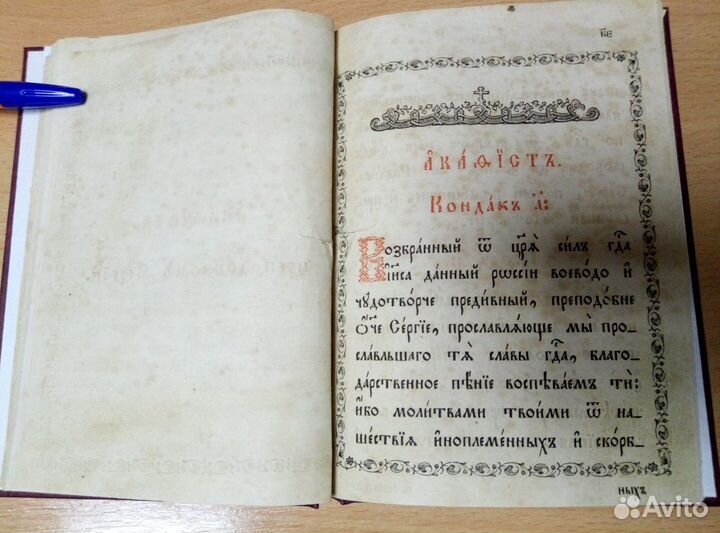 к҃е
А҆ка́ѳїстъ.
Конда́къ а҃:
Возбра́нный ѿ цр҃ѧ̀ си́лъ гдⷭ҇а
і҆и҃са да́нный рѡссі́и воево́до и҆
чꙋдотво́рче преди́вный, преподо́бне
ѻ҆́ч҃е Се́ргїе, прославлѧ́юще мы̀ про-
сла́вльшаго тѧ̀ сла́вы гдⷭ҇а, благо-
да́рственное пѣ́нїе воспѣва́емъ тѝ:
и҆́бо моли́твами твои́ми ѿ на-
ше́ствїѧ и҆ноплеме́нныхъ и҆ скорб-
ныхъ
Avito